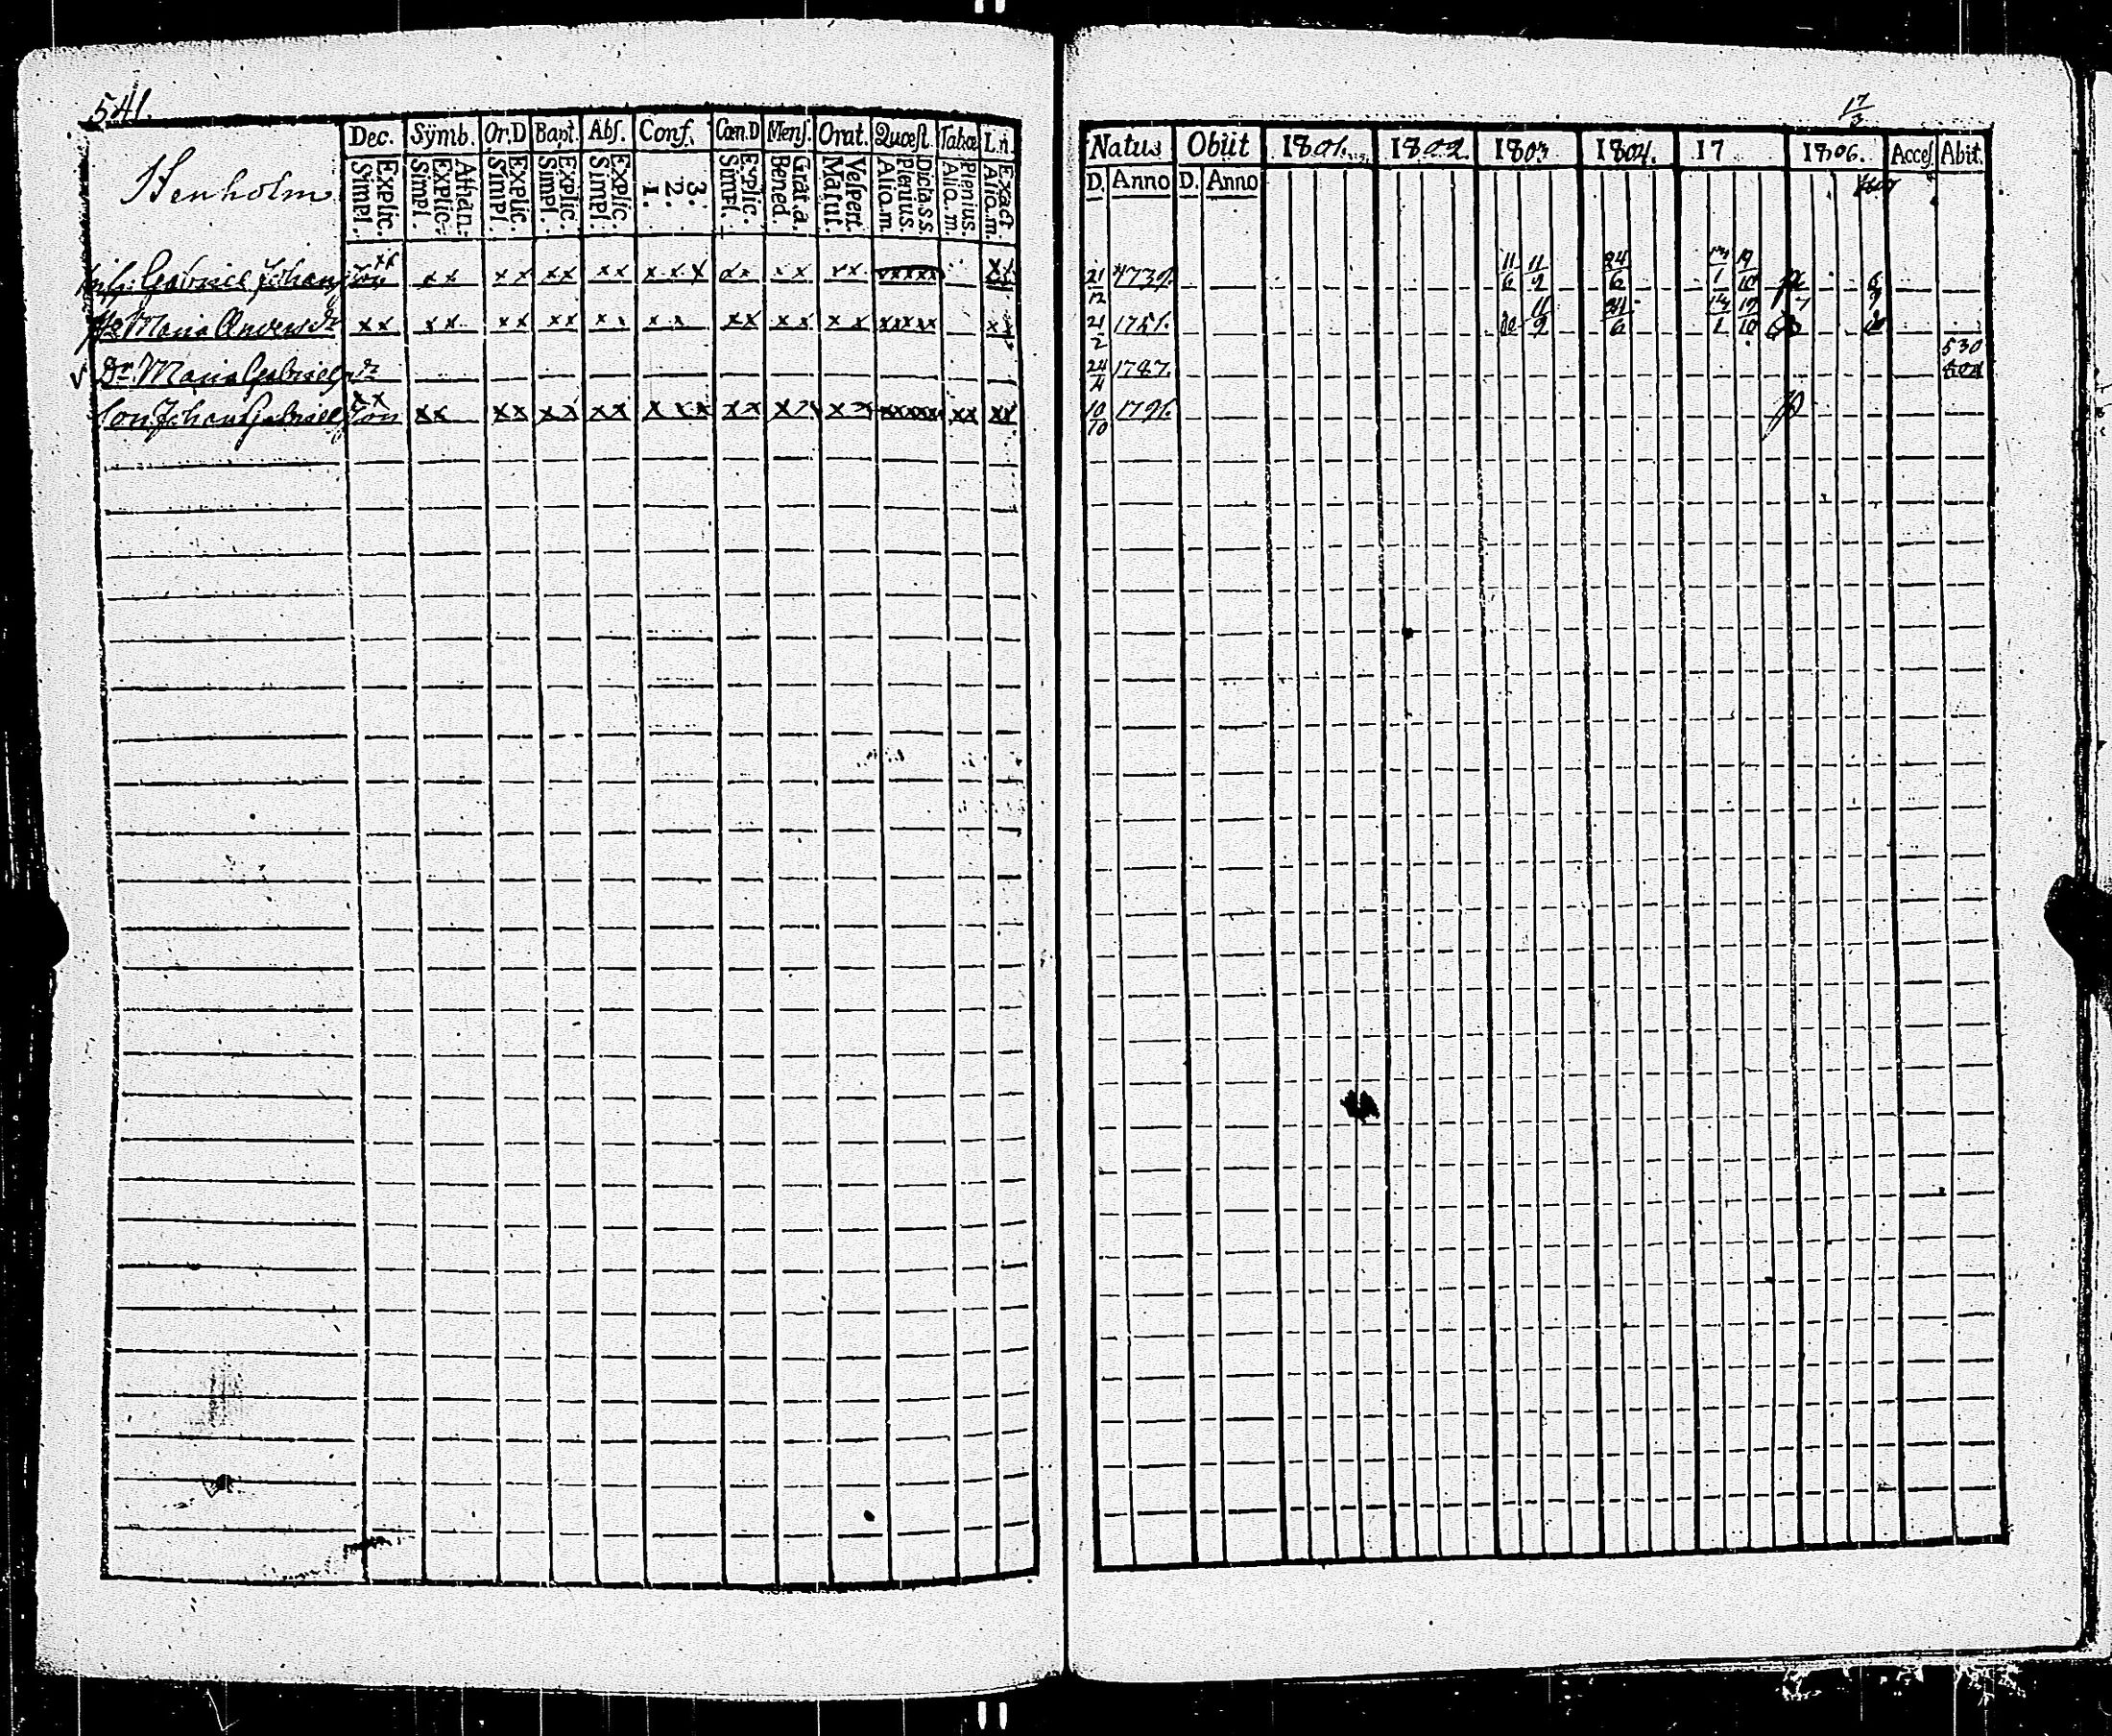 541.
17/3
Dec. Symb. Or.D Bapt. Abſ. Conf. Cœn.D Menſ. Orat. Quœſt. Tabœ L.n.
Simpl. Explic. Simpl. Explic. Athan. Simpl. Explic. Simpl. Explic. Simpl. Explic. 1. 2. 3. Simpl. Explic. Bened. Grat.a. Matut. Veſpert. Alio.m. Plenius. Dicta.s.s. Alio.m. Plenius. Alio.m. Exact.
Stenholm
Natus Obiit 1801. 1802 1803 1804. 17 1806. Acceſ. Abit.
D. Anno D. Anno
Gabriel Johansson xx xx xx xx xx x x x xx xx xx xxxxx xx 21/12 1739. 11/6 11/9 24/6
Maria Andersdr xx xx xx xx xx xx xx xx xx xxxxx xx 21/2 1751. 11/9 24/6
Dr. Maria Gabrielsdr 24/4 1787. 530
Son Johan Gabrielsson xx xx xx xx xx x x x xx xx xx xxxxx xx xx 10/10 1791.